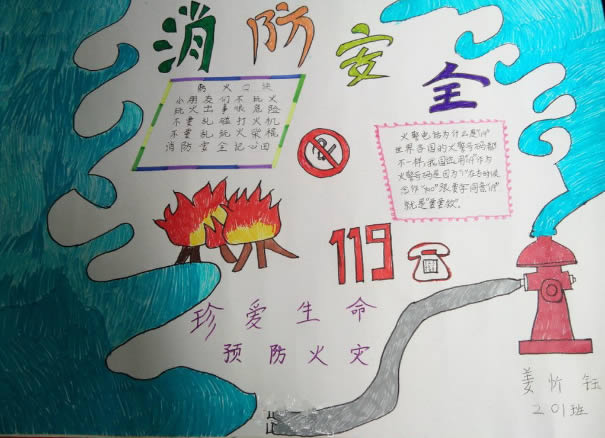 消防安全
防火口诀
小朋友们不玩火
玩火出事很危险
不要乱碰打火机
不要乱玩火柴棍
消防安全记心田
火警电话为什么是"119"
世界各国的火警号码都
不一样,我国选用"119"作为
火警号码是因为"1"在古时候
念作"yao"跟要字同音"119"
就是"要要救".
119
珍爱生命
预防火灾
姜忻钰
201班